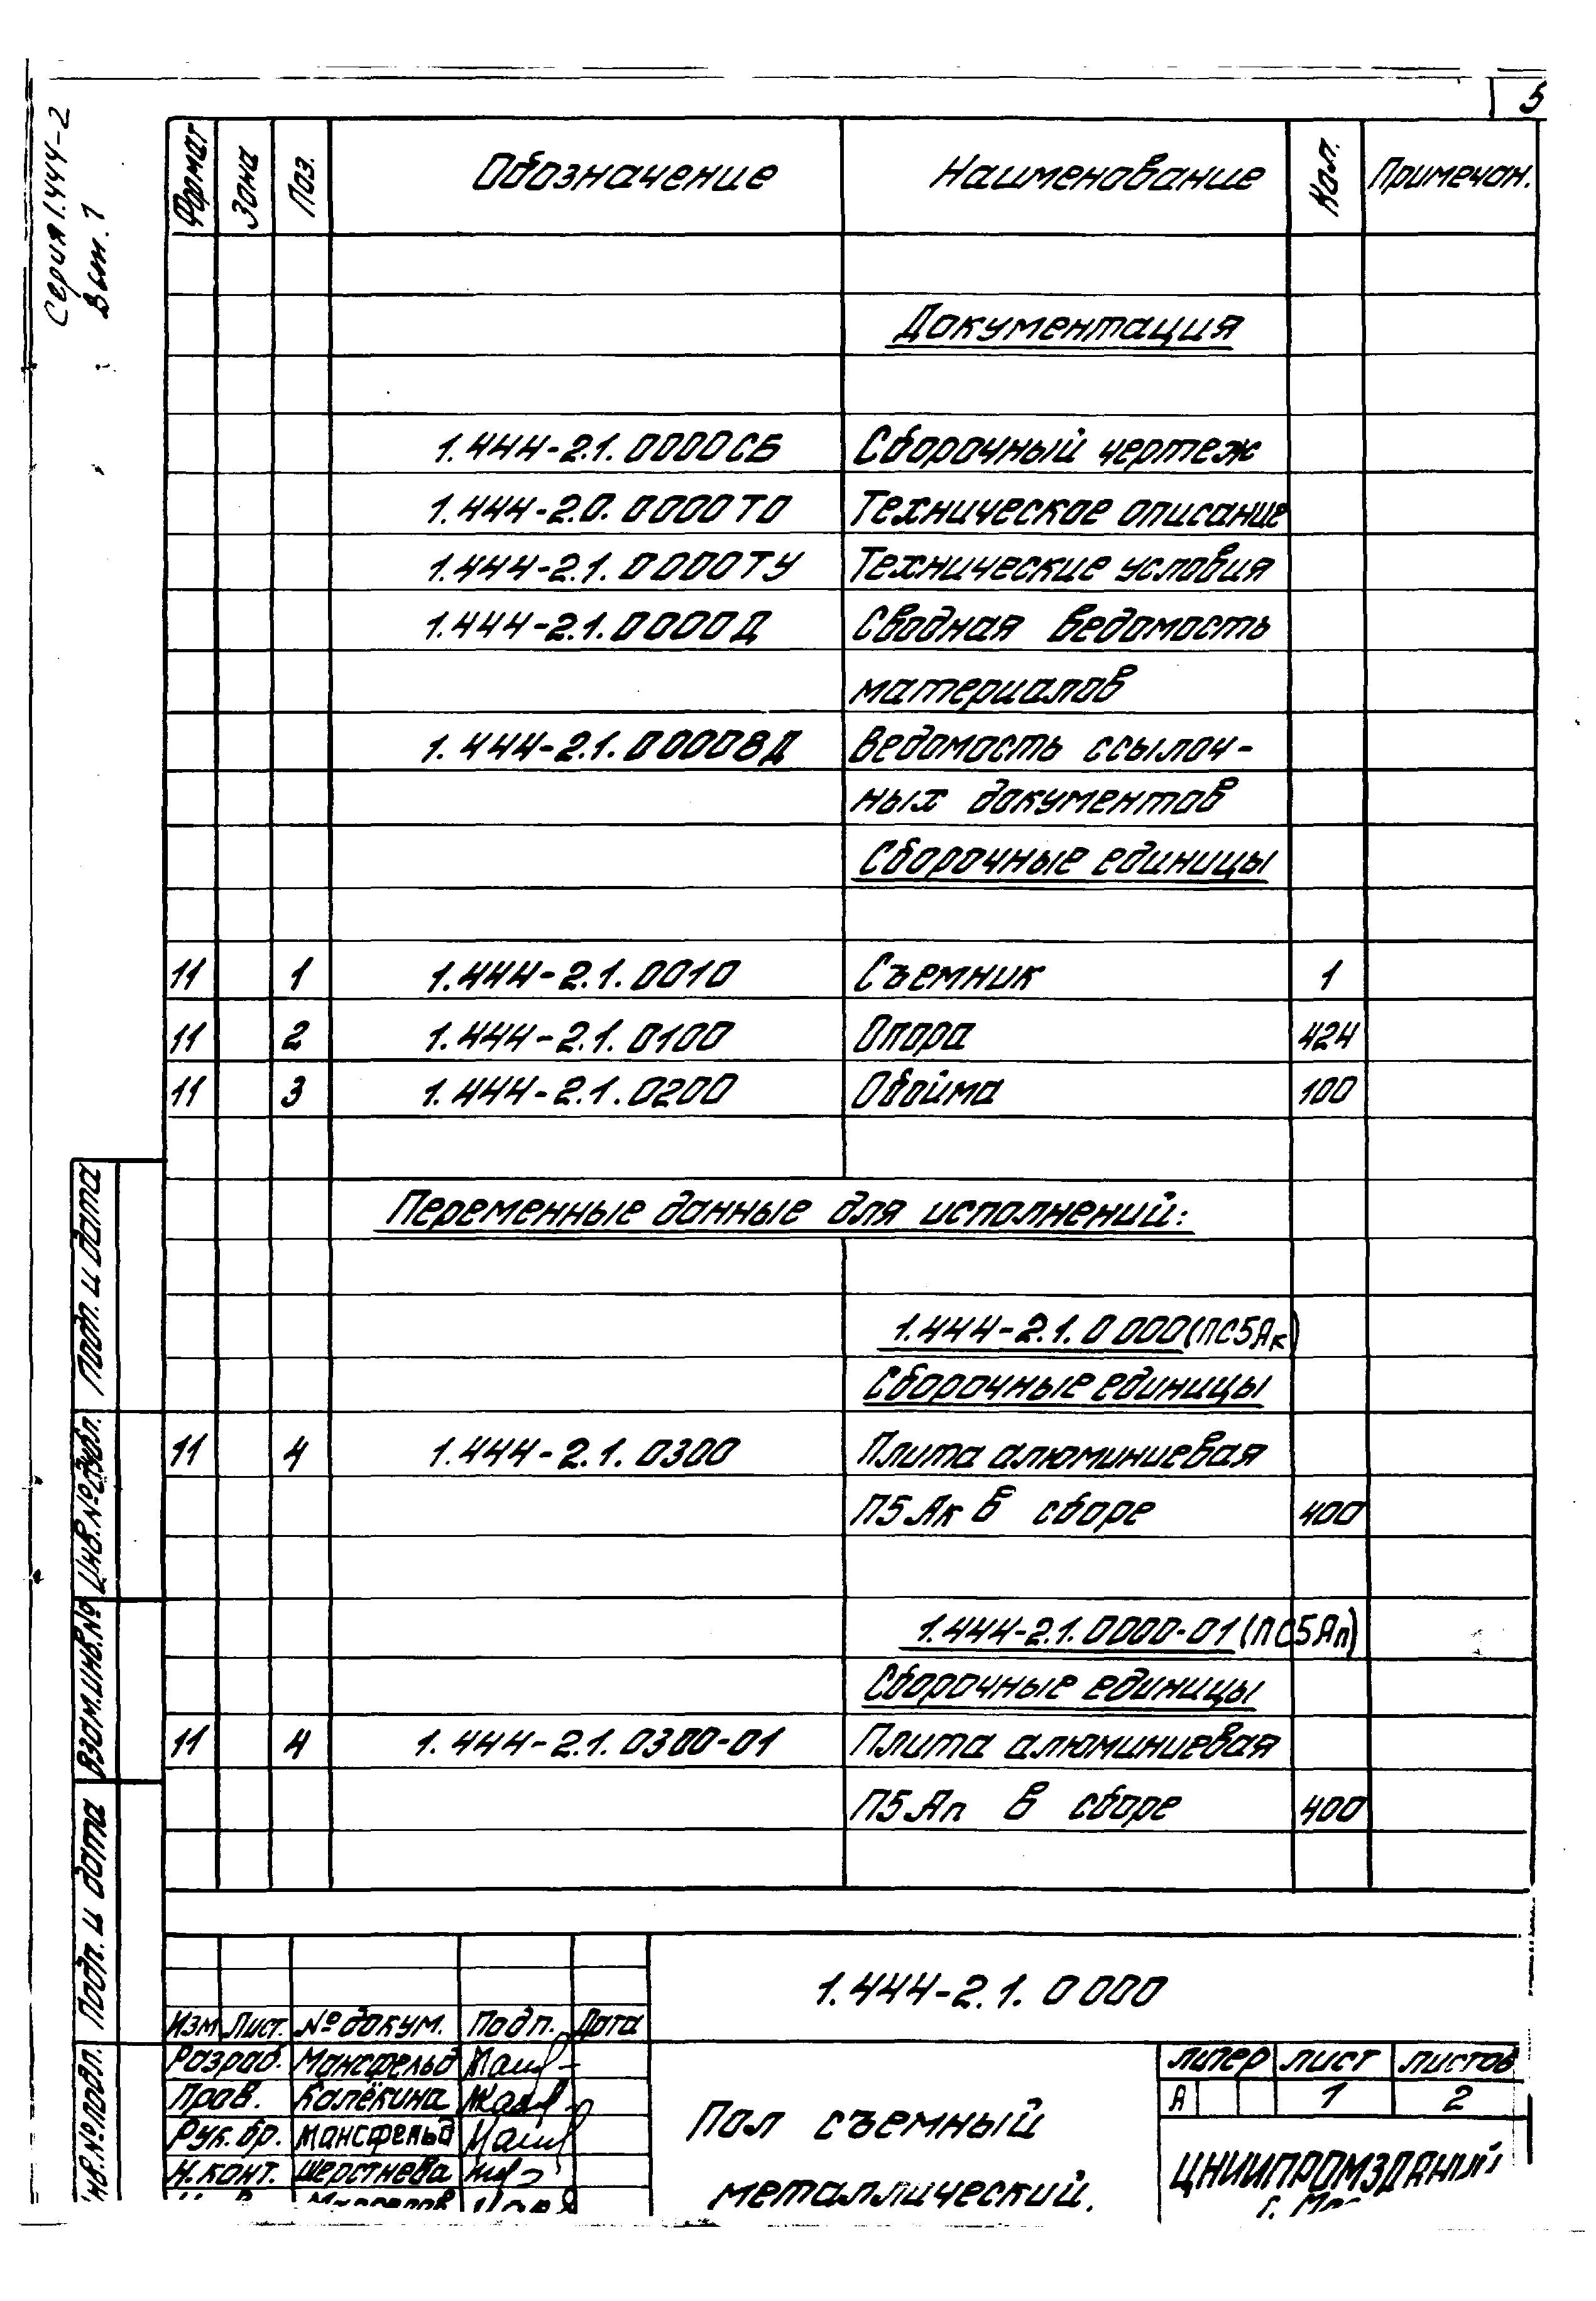 5
Серия 1.444-2
Вып. 1
Формат Зона Поз. Обозначение Наименование Кол. Примечан.
Документация
1.444-2.1.0000СБ Сборочный чертеж
1.444-2.0.0000ТО Техническое описание
1.444-2.1.0000ТУ Технические условия
1.444-2.1.0000Д Сводная ведомость
материалов
1.444-2.1.0000ВД Ведомость ссылоч-
ных документов
Сборочные единицы
11 1 1.444-2.1.0010 Съемник 1
11 2 1.444-2.1.0100 Опора 424
11 3 1.444-2.1.0200 Обойма 100
Переменные данные для исполнений:
1.444-2.1.0000(ПС5Ак)
Сборочные единицы
11 4 1.444-2.1.0300 Плита алюминиевая
П5Ак в сборе 400
1.444-2.1.0000-01(ПС5Ап)
Сборочные единицы
11 4 1.444-2.1.0300-01 Плита алюминиевая
П5Ап в сборе 400
Подп. и дата
Инв.№ дубл.
Взам.инв.№
Подп. и дата
Инв.№ подл.
1.444-2.1.0000
Изм Лист. № докум. Подп. Дата
Разраб. Мансфельд
Пров. Калёкина
Рук. бр. Мансфельд
Н.конт. Шерстнева
Пол съемный
металлический.
литер лист листов
А 1 2
ЦНИИПРОМЗДАНИЙ